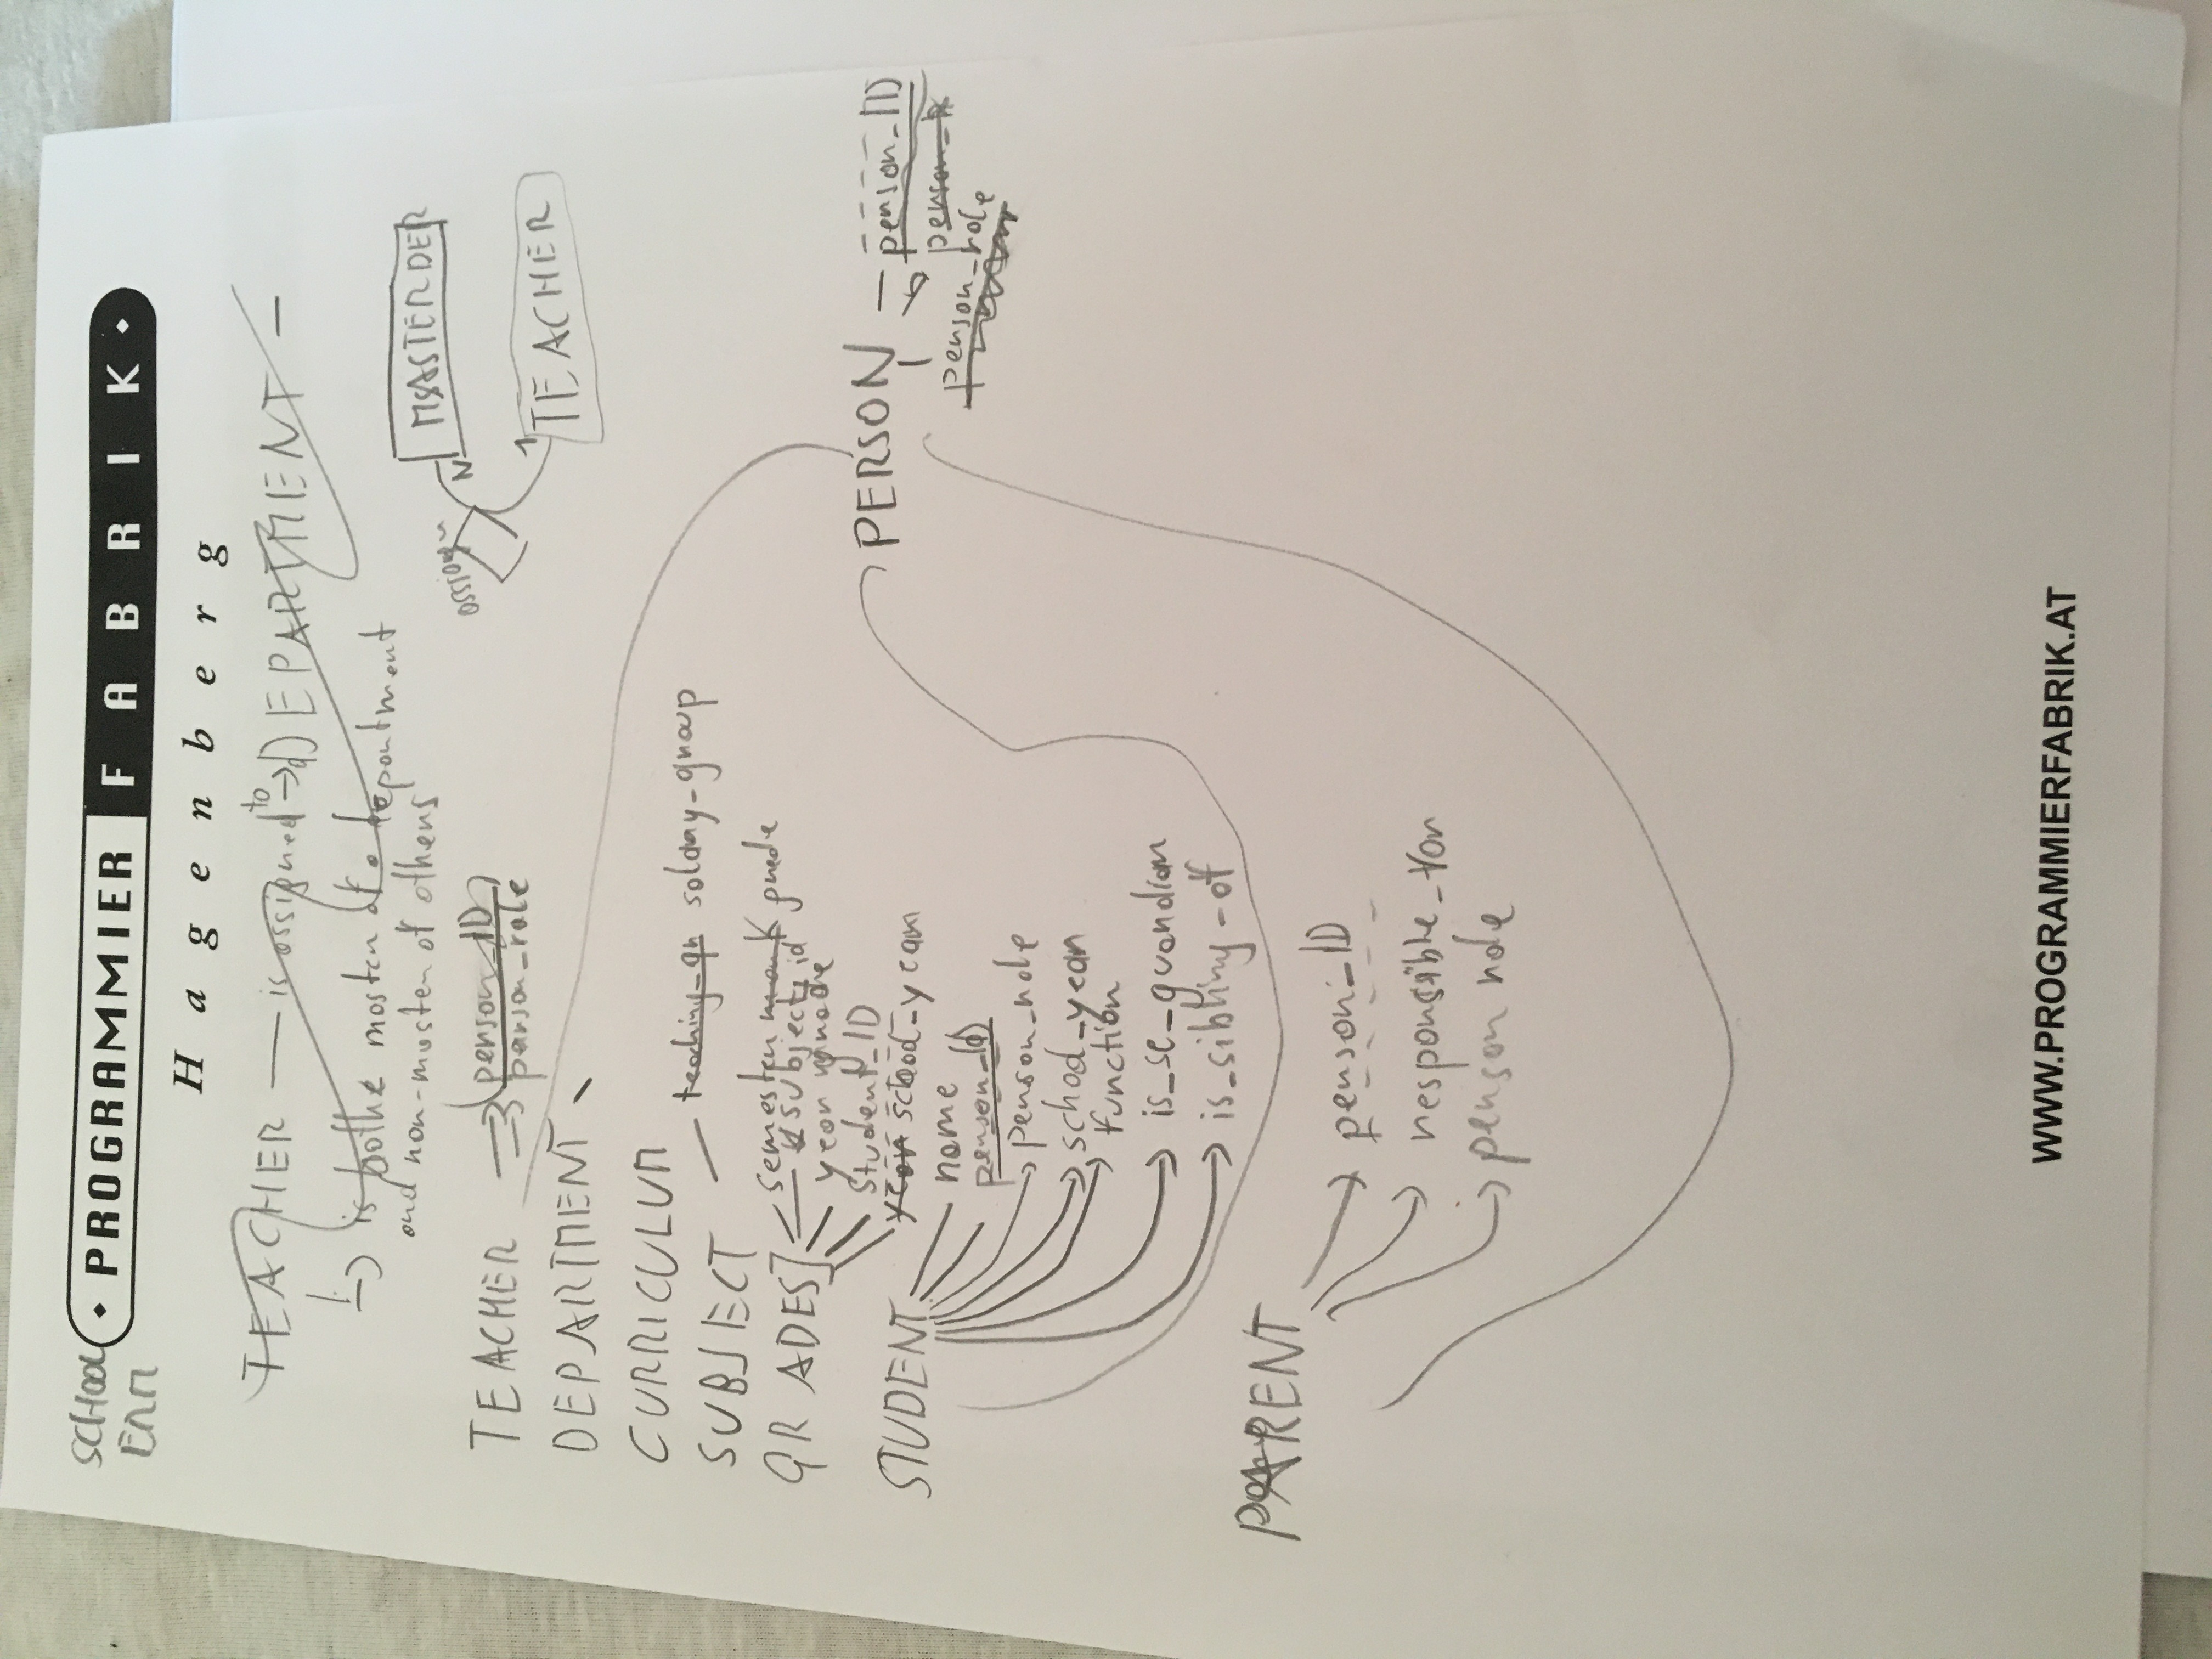 SCHOOL
ERM
PROGRAMMIER FABRIK
Hagenberg
TEACHER — is assigned to → DEPARTMENT —
is bothe master of a department
and non-master of others
assign
N
MASTER DEP
1
TEACHER
TEACHER
person_ID
person_role
DEPARTMENT
CURRICULUM
SUBJECT — teaching_gr salary_group
GRADES
semester mark grade
subject_id
year grade
student_ID
year school_year
STUDENT
name
person_id
person_role
school_year
function
is_se_guardian
is_sibling_of
PERSON — person_ID
person_R
person_role
PARENT
person_ID
responsible_for
person role
WWW.PROGRAMMIERFABRIK.AT